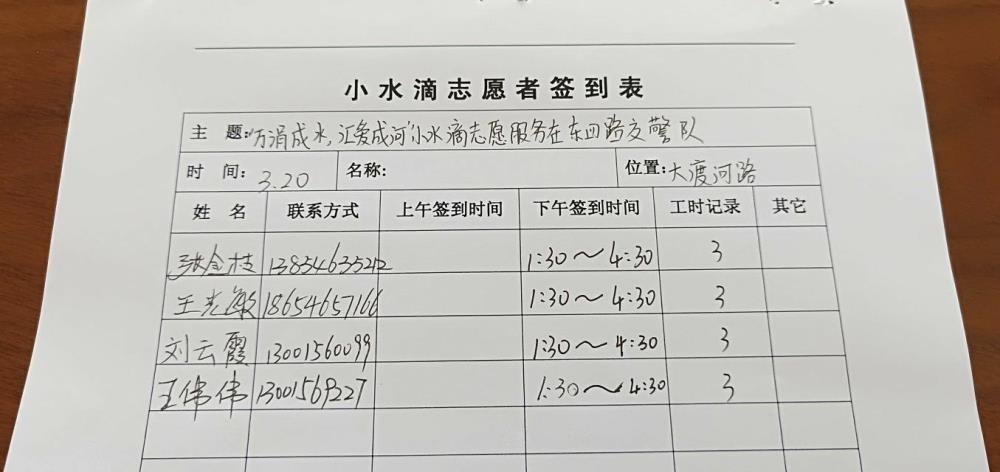 小水滴志愿者签到表
主 题:"万涓成水,汇爱成河"小水滴志愿服务在东四路交警队
时 间: 3.20 名称: 位置:大渡河路
姓 名 联系方式 上午签到时间 下午签到时间 工时记录 其它
张金枝 13854635212 1:30～4:30 3
王光敏 18654657166 1:30～4:30 3
刘云霞 13001560099 1:30～4:30 3
王伟伟 13001569227 1:30～4:30 3